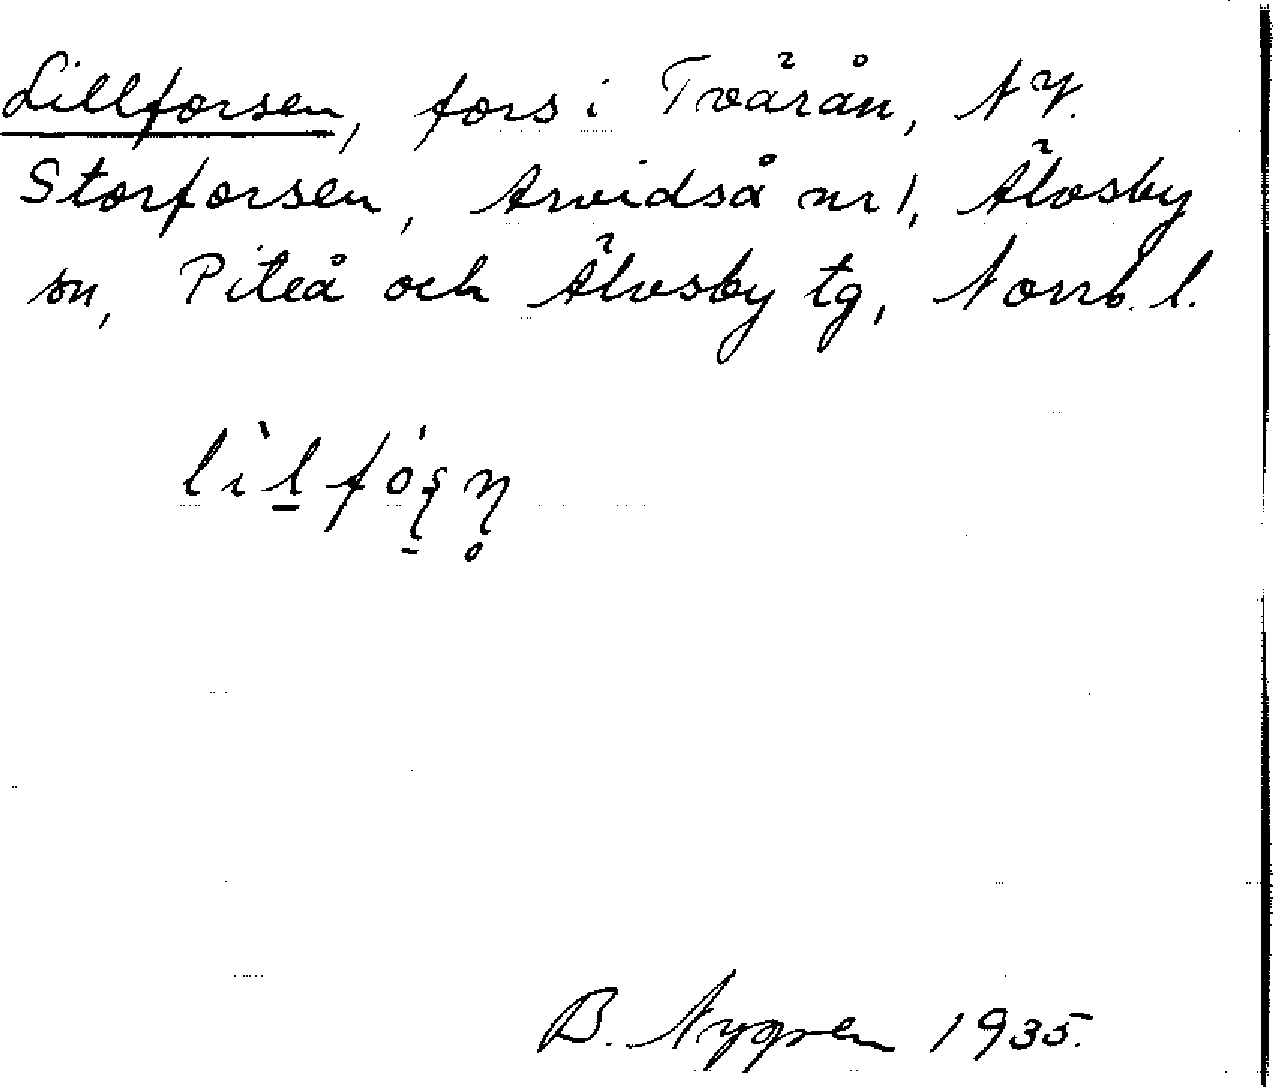 Lillforsen, fors i Tväråån, NV.
Storforsen, Arvidså nr 1, Älvsby
sn, Piteå och Älvsby tg, Norrb. l.
B. Nygren 1935.